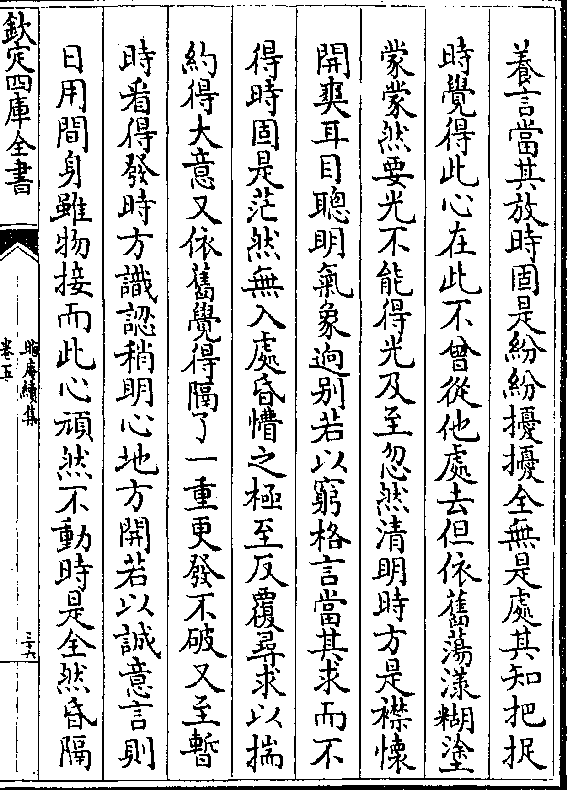 養言當其放時固是紛紛擾擾全無是處其知把捉
時覺得此心在此不曾從他處去但依舊蕩漾糊塗
蒙蒙然要光不能得光及至忽然清明時方是襟懷
開爽耳目聰明氣象逈别若以窮格言當其求而不
得時固是茫然無入處昏懵之極至反覆尋求以揣
約得大意又依舊覺得隔了一重更發不破又至暫
時看得發時方識認稍明心地方開若以誠意言則
日用間身雖物接而此心頑然不動時是全然昏隔
欽定四庫全書
晦庵續集
卷五
三六